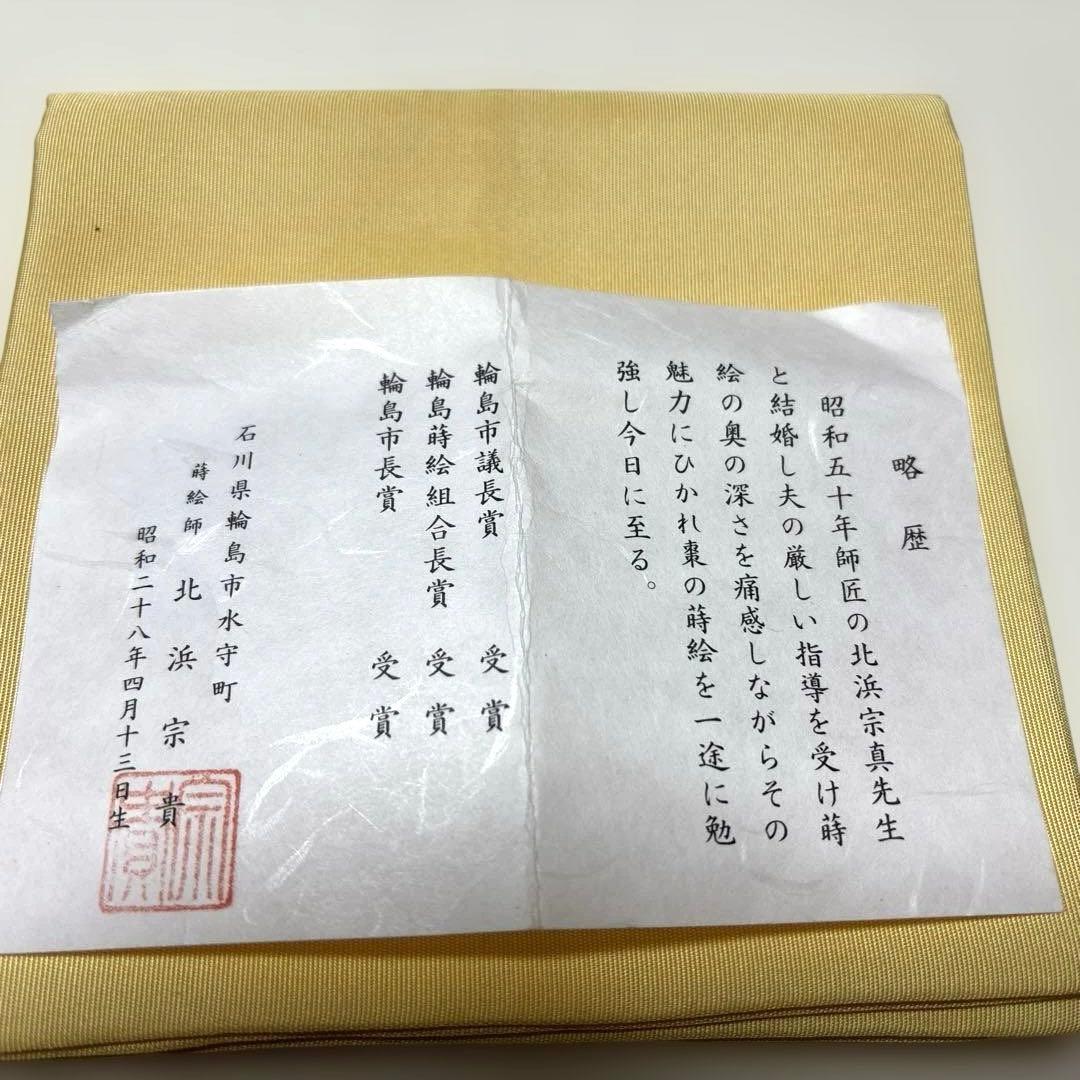 略歴
昭和五十年師匠の北浜宗真先生
と結婚し夫の厳しい指導を受け蒔
絵の奥の深さを痛感しながらその
魅力にひかれ棗の蒔絵を一途に勉
強し今日に至る。
輪島市議長賞 受賞
輪島蒔絵組合長賞 受賞
輪島市長賞 受賞
石川県輪島市水守町
蒔絵師 北浜宗貴
昭和二十八年四月十三日生
宗貴